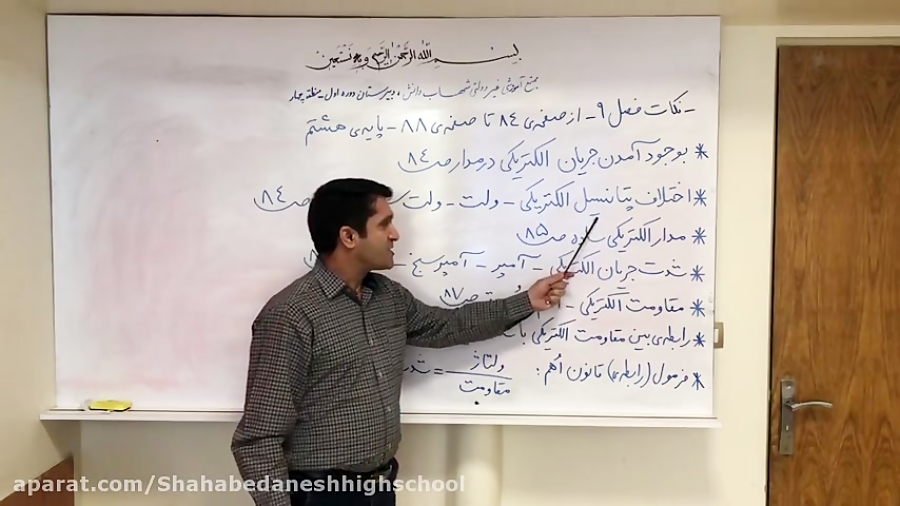 بسم الله الرحمن الرحیم و به نستعین
مجتمع آموزشی غیر دولتی شهاب دانش، دبیرستان دوره اول - منطقه چهار
- نکات فصل ۹ - از صفحه‌ی ۸۴ تا صفحه‌ی ۸۸ - پایه‌ی هشتم
* بوجود آمدن جریان الکتریکی در مدار ص ۸۴
* اختلاف پتانسیل الکتریکی - ولت - ولت ص ۸۴
* مدار الکتریکی ساده ص ۸۵
* شدت جریان الکتریکی - آمپر - آمپرسنج -
* مقاومت الکتریکی - ص ۸۷
* رابطه‌ی بین مقاومت الکتریکی با
* فرمول (رابطه‌ی) قانون اُهم: ولتاژ / مقاومت = شدت
aparat.com/Shahabedaneshhighschool